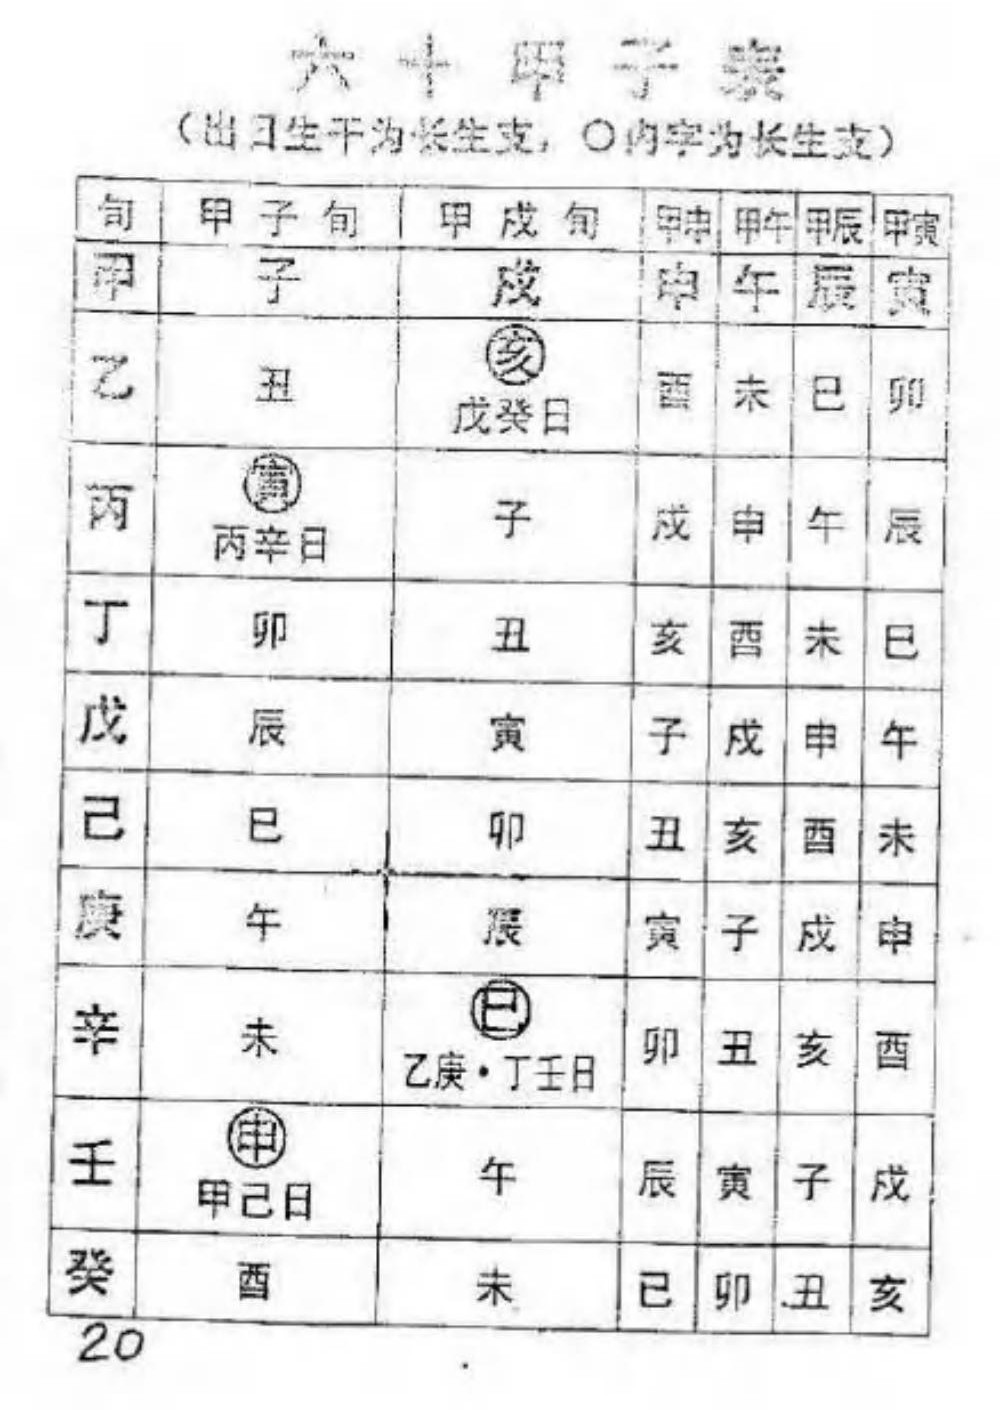 六十甲子表
(出日生干为长生支,○内字为长生支)
旬 甲子旬 甲戌旬 甲申 甲午 甲辰 甲寅
甲 子 戌 申 午 辰 寅
乙 丑 亥 酉 未 巳 卯
戊癸日
丙 寅 子 戌 申 午 辰
丙辛日
丁 卯 丑 亥 酉 未 巳
戊 辰 寅 子 戌 申 午
己 巳 卯 丑 亥 酉 未
庚 午 辰 寅 子 戌 申
辛 未 巳 卯 丑 亥 酉
乙庚·丁壬日
壬 申 午 辰 寅 子 戌
甲己日
癸 酉 未 巳 卯 丑 亥
20